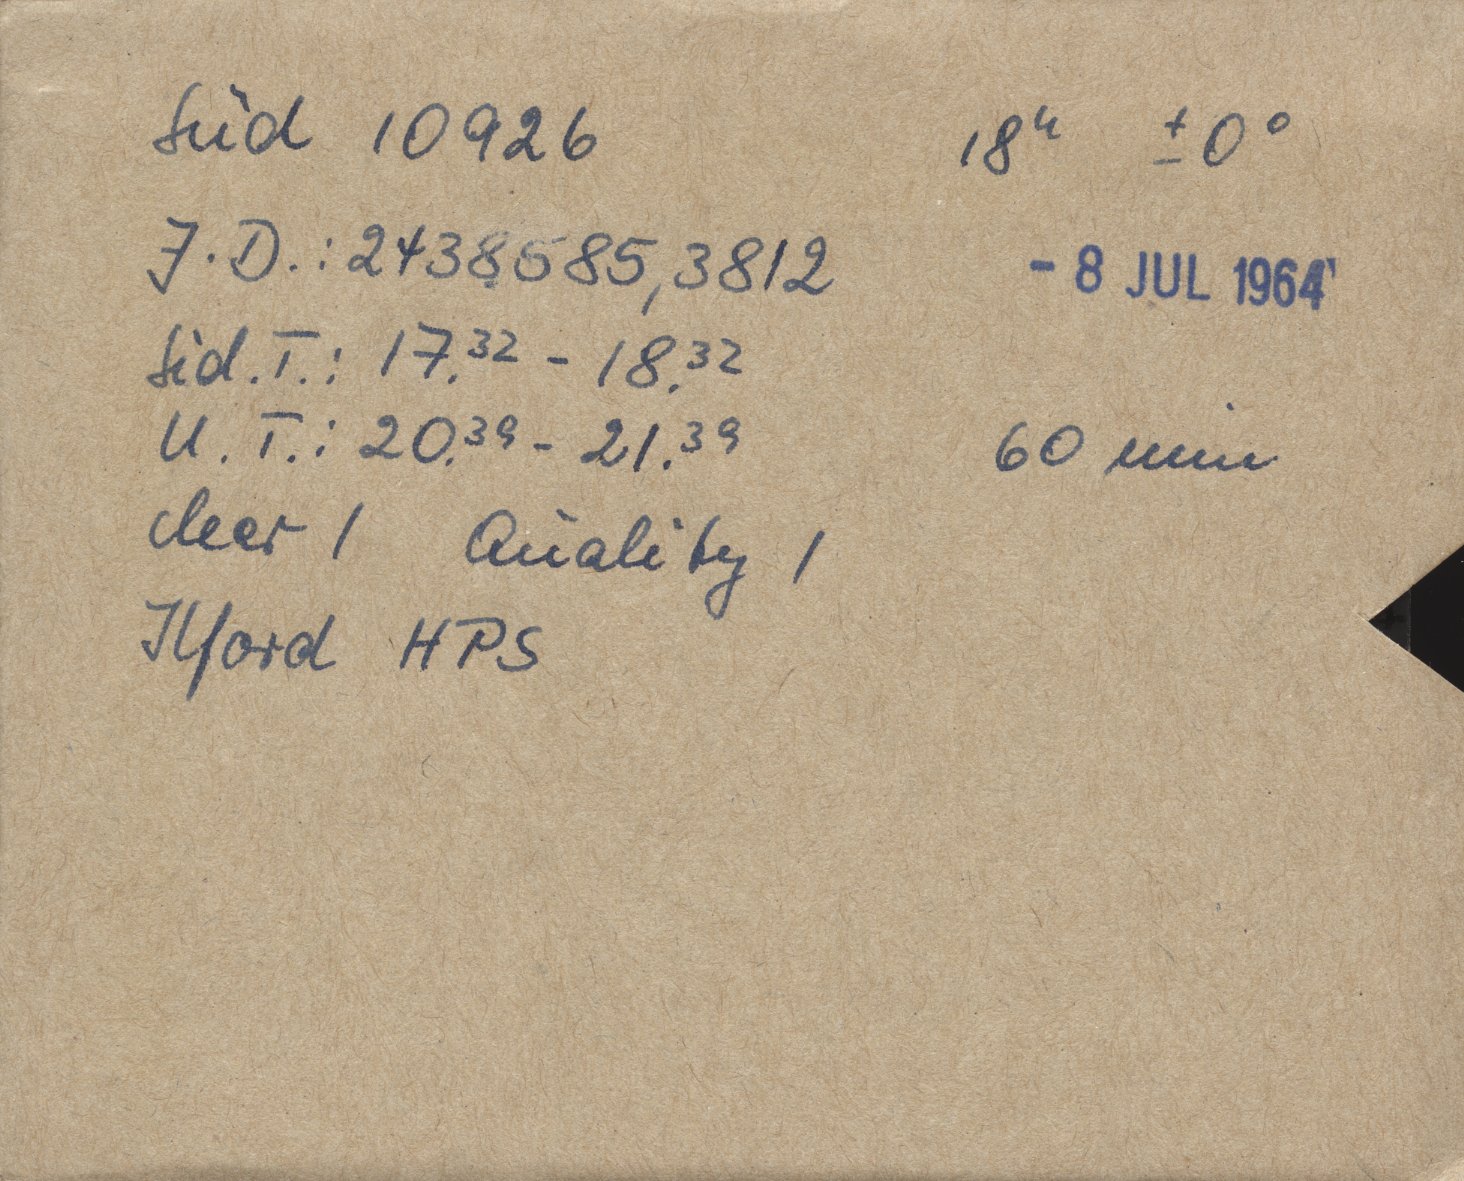 Süd 10926 18h ±0°
J.D.: 2438585,3812 - 8 JUL 1964
Sid.T.: 17.32 - 18.32
U.T.: 20.39 - 21.39 60 min
clear 1 Quality 1
Ilford HPS